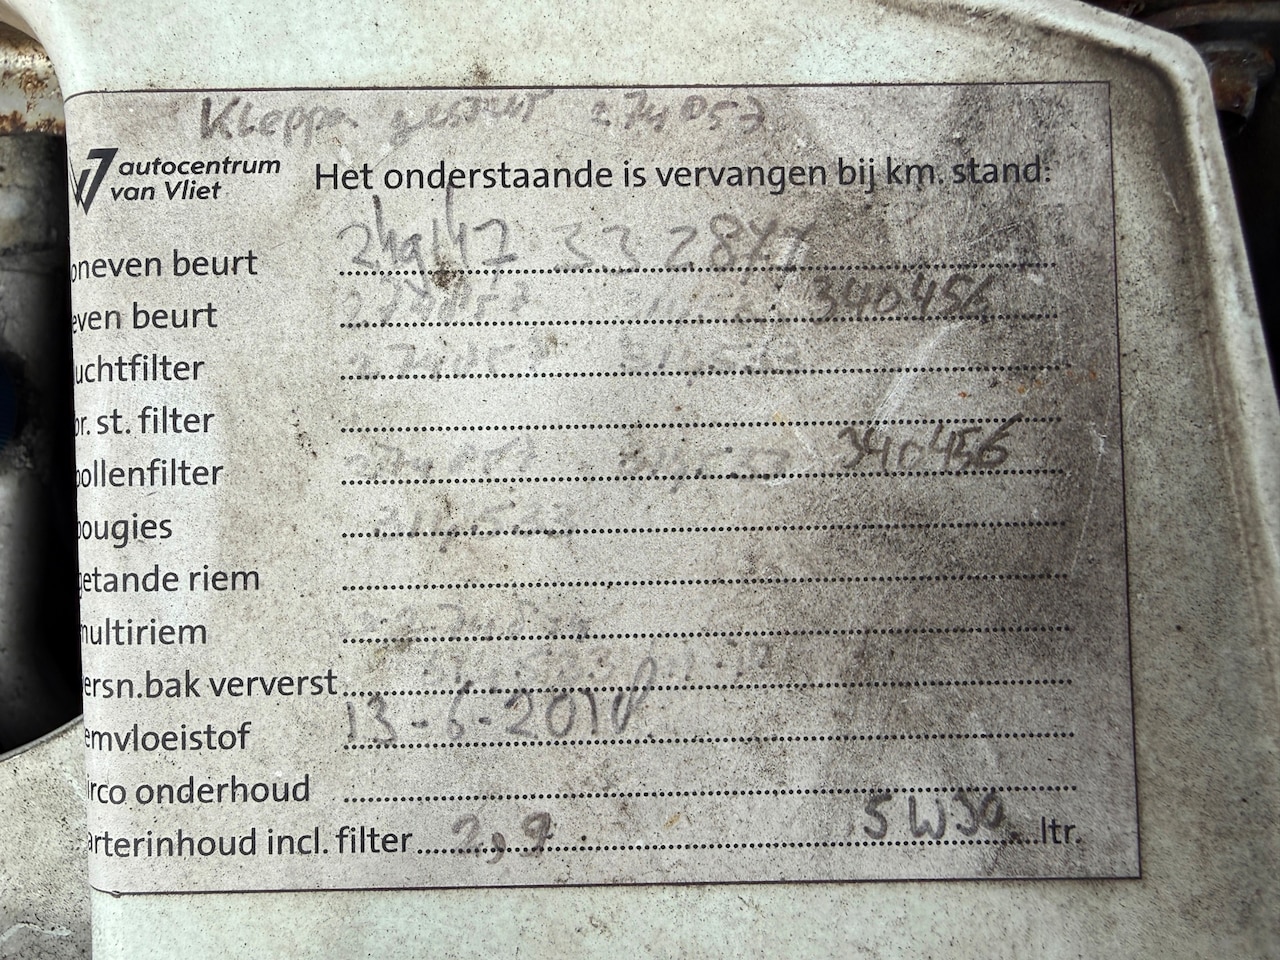 Kleppen gesteld 274053
autocentrum
van Vliet
Het onderstaande is vervangen bij km. stand:
oneven beurt 249147 33287
even beurt 274053 340456
uchtfilter 274053 311533
br. st. filter
pollenfilter 274053 311533 340456
bougies 311533
getande riem
multiriem
ersn.bak ververst
emvloeistof 13-6-2018
irco onderhoud
arterinhoud incl. filter 2,9 5W30 ltr.